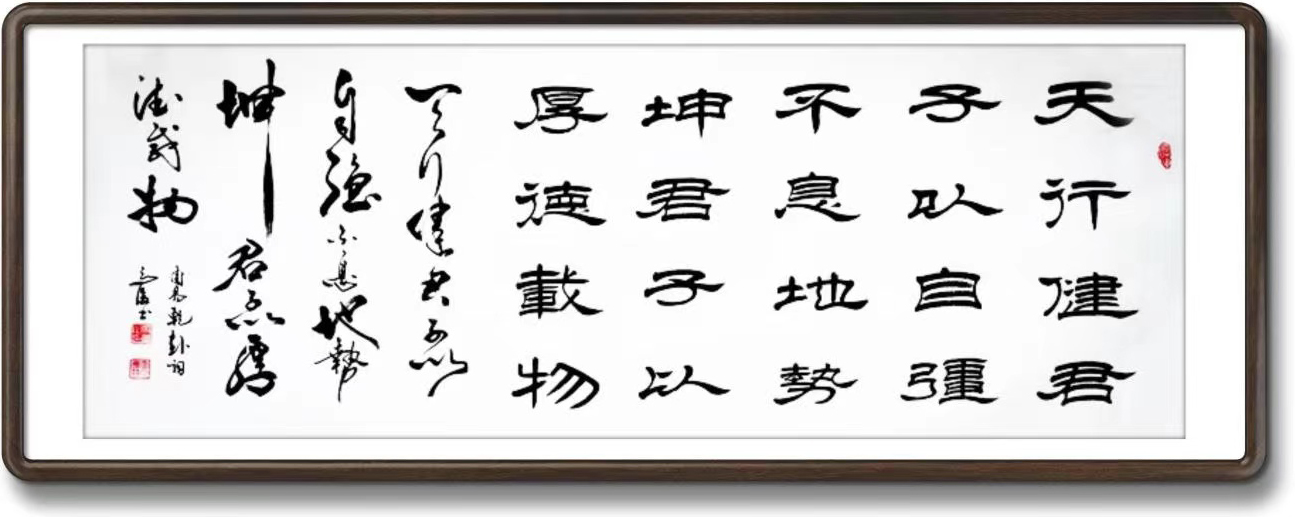 天行健君
子以自彊
不息地勢
坤君子以
厚德載物
天行健君子以
自強不息地勢
坤君子以厚
德載物
周易乾卦詞
书